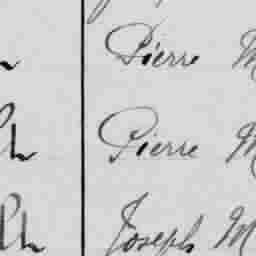 Pierre M
Pierre M
Joseph M